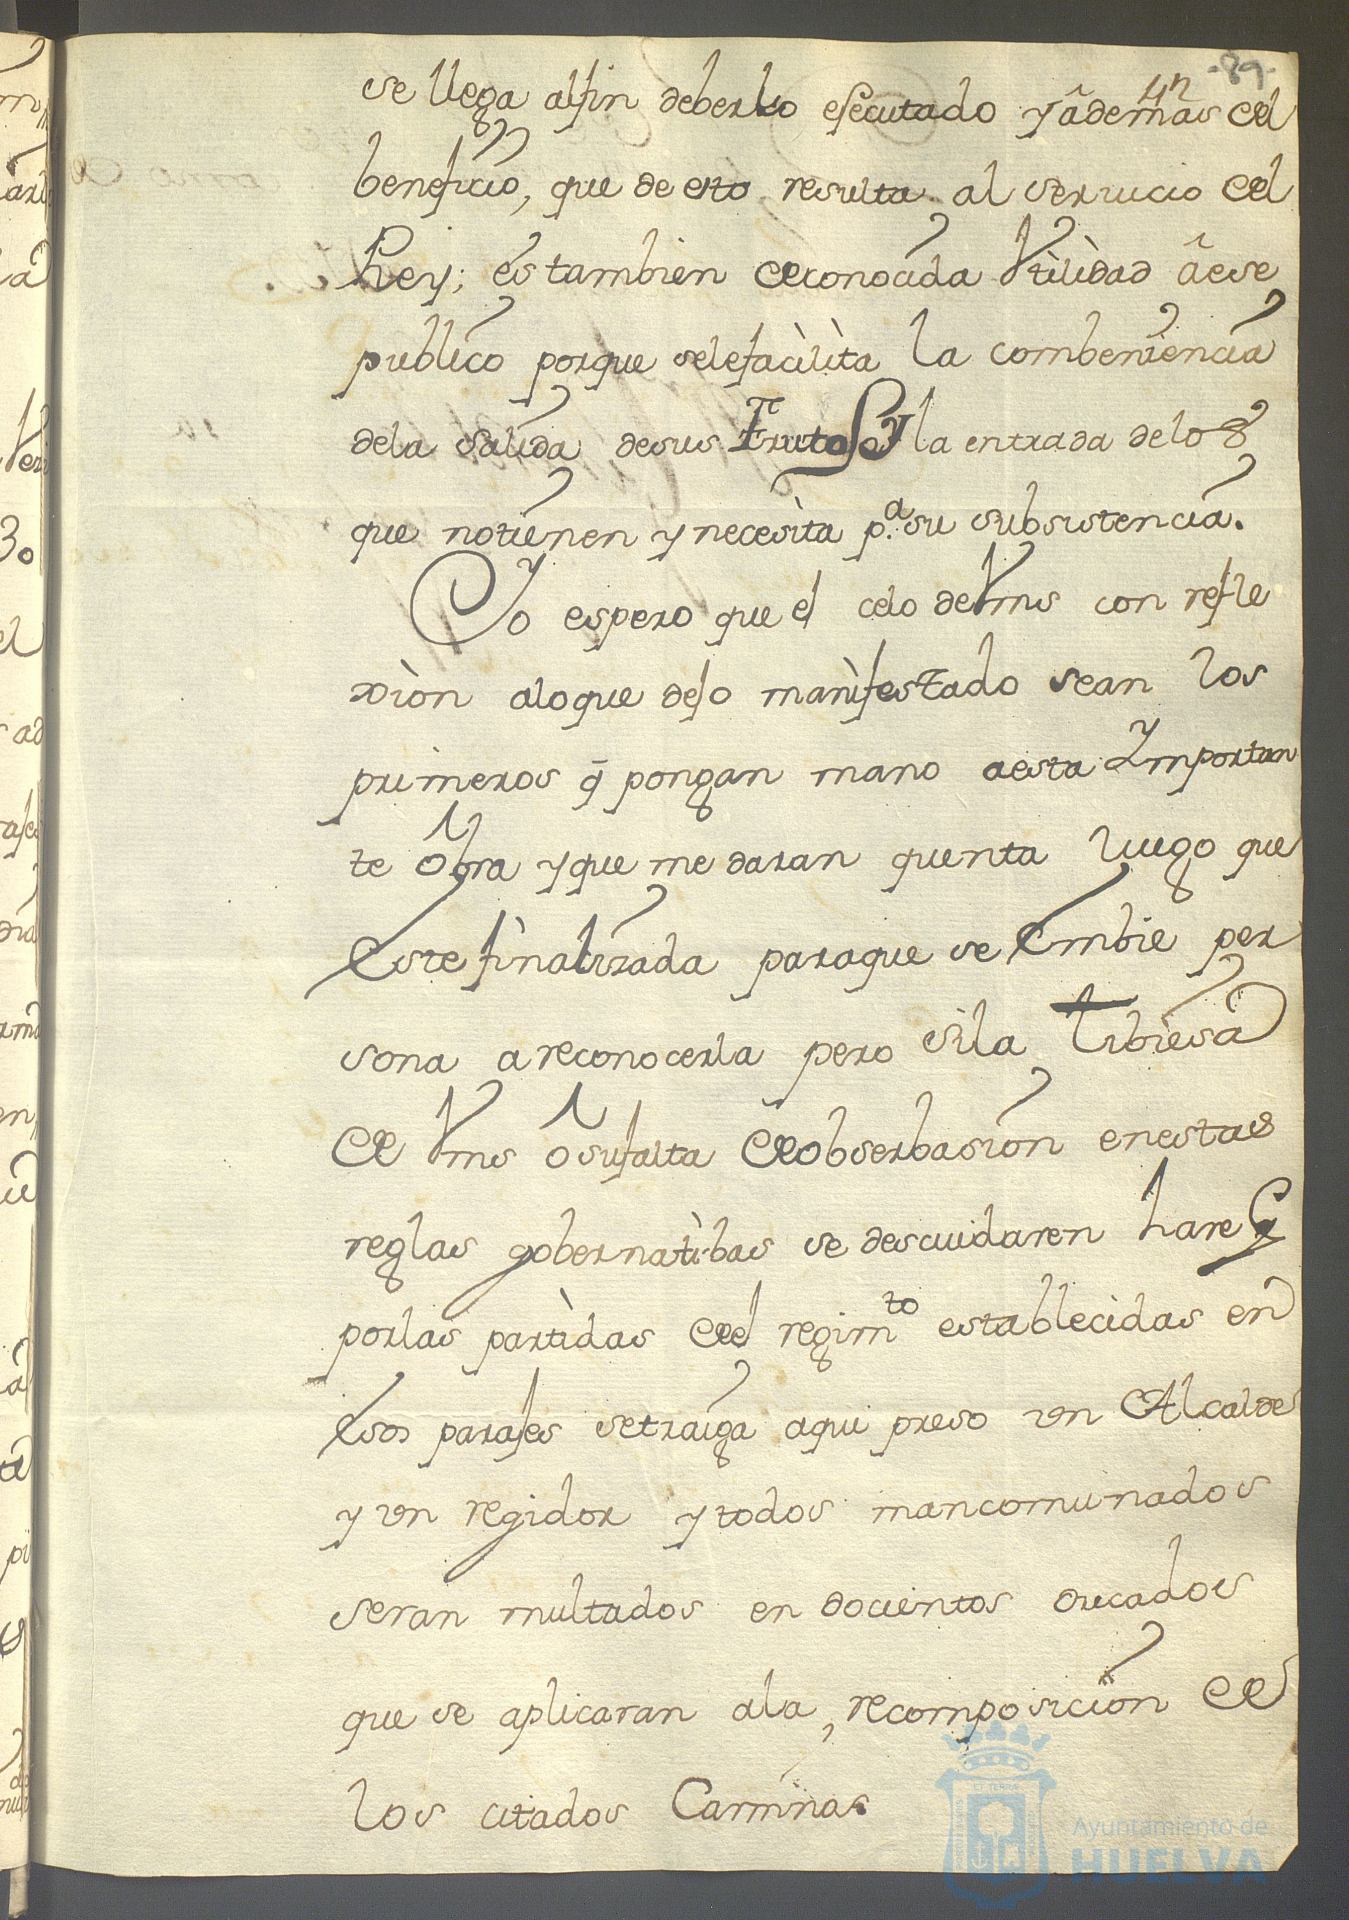 -89-
42
se llega alfin deberlo efecutado y âdemas del
beneficio, que de esto resulta al serucio del
Rey; es tambien deconocida Vtilidad âese
publico porque selefacilita la combeniencia
dela salida desus Frutos y la entrada delos
que notienen y necesita p.ª su subsistencia.
Yo espero que el celo deVms con refle
xion aloque dejo manifestado sean los
primeros q̃ pongan mano aesta Ymportan
te ôbra yque me daran quenta luego que
este finalizada paraque se embie per
sona areconocerla pero sila tibiesa
de Vms ô sufalta deobserbasion enestas
reglas gobernatibas se descuidaren hare q
porlas partidas del regim.to establecidas en
esos parajes setraiga aqui preso vn Alcalde
y vn regidor y todos mancomunados
seran multados en docientos ducados
que se aplicaran ala, recomposicion de
los citados Caminos
Ayuntamiento de
HUELVA